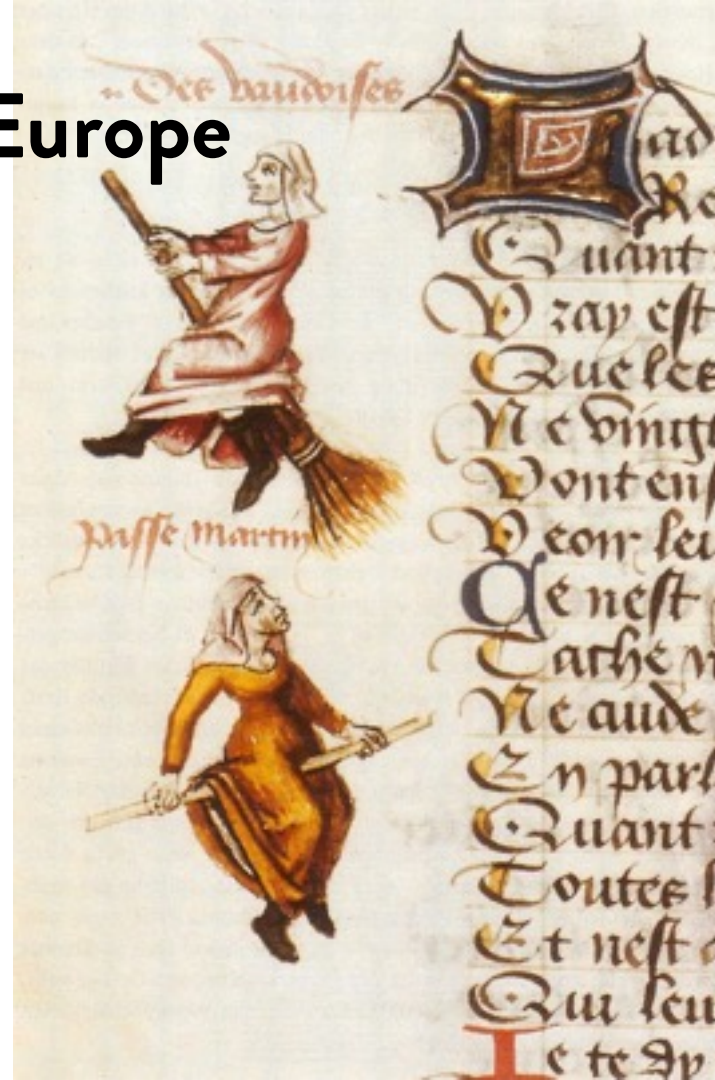 Des vaudoises
Europe
passe martin
Quant
Vray est
Que les
Ne vingt
Vont
Veoir
Ce nest
Tache
Ne cuide
En
Quant
Toutes
Et nest
Qui leu
Je te dy